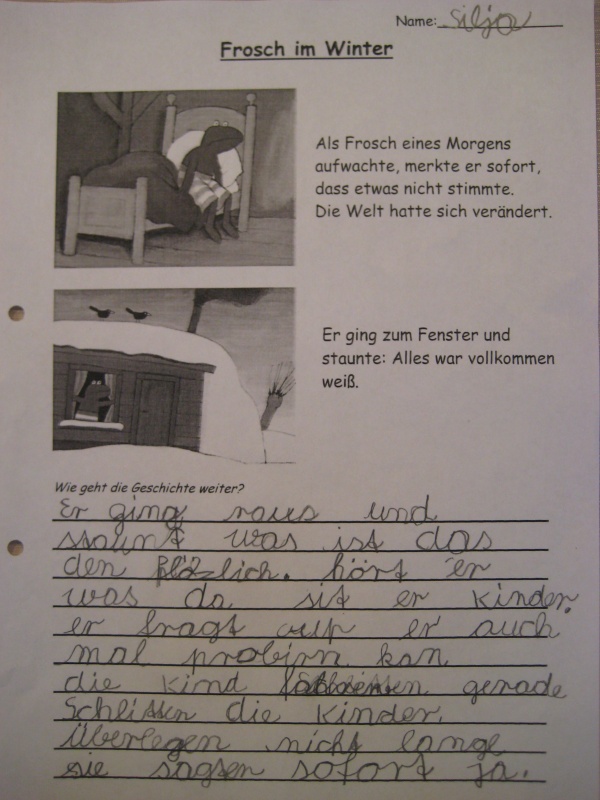 Name: Silja
Frosch im Winter
Als Frosch eines Morgens
aufwachte, merkte er sofort,
dass etwas nicht stimmte.
Die Welt hatte sich verändert.
Er ging zum Fenster und
staunte: Alles war vollkommen
weiß.
Wie geht die Geschichte weiter?
Er ging raus und
staunt was ist das
den plözlich. hört er
was da sit er kinder.
er fragt aup er auch
mal probirn kan
die kind gerade
Schlitten die kinder.
überlegen nicht lange
sie sagten sofort ja.